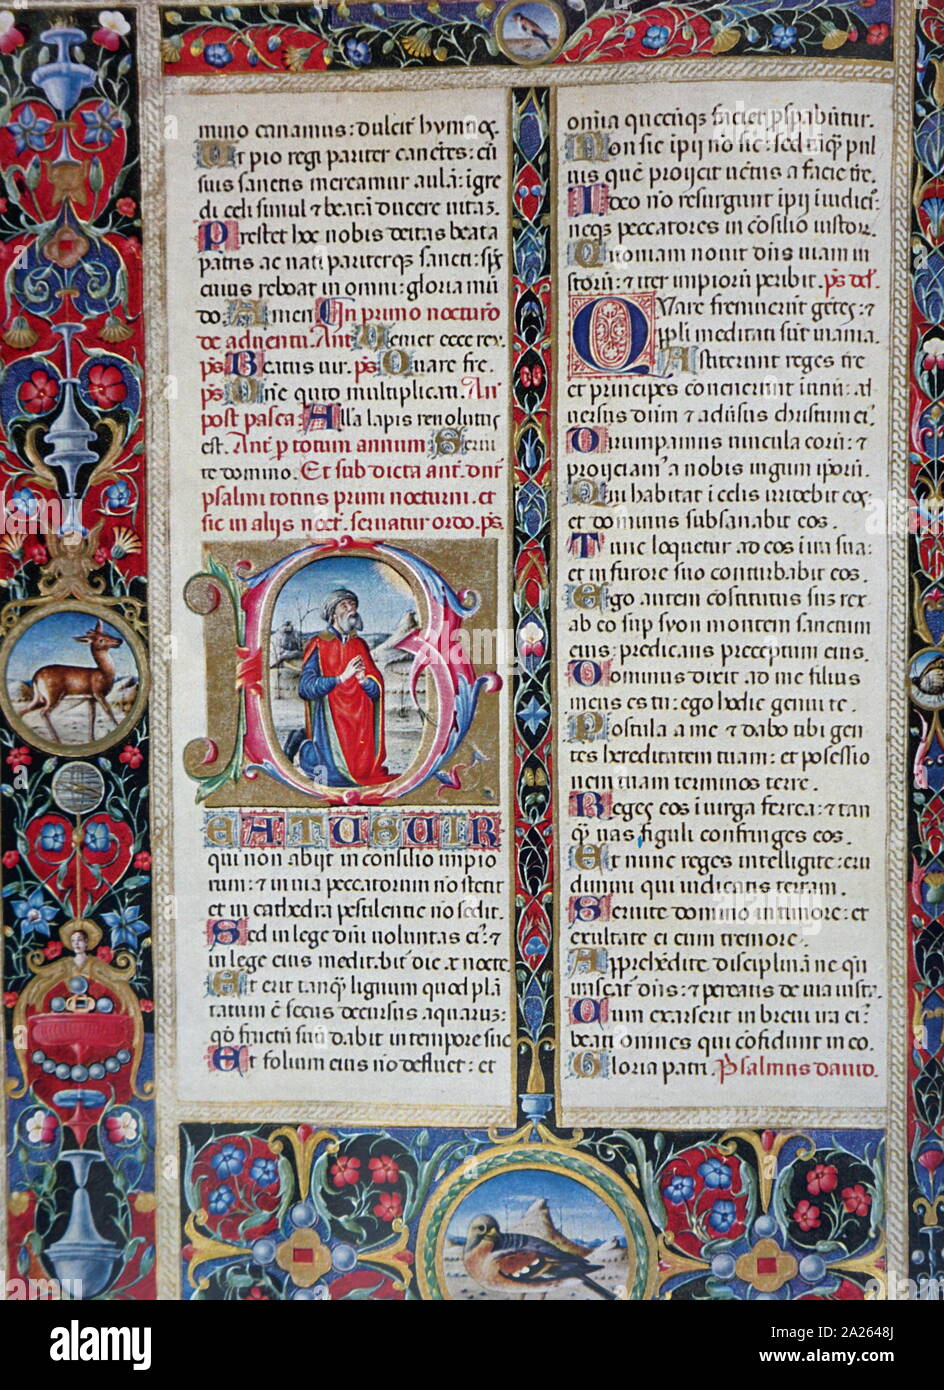 mino canamus: dulcit hymnoꝫ.
Ut pio regi pariter canētes: cū
suis sanctis mereamur aulā: īgre
di celi simul ⁊ beatā ducere uitaꝫ.
Prestet hoc nobis deitas beata
patris ac nati pariterqꝫ sancti: spūs
cuius reboat in omni: gloria mū
do. Amen. In primo nocturo
de aduentu. Ant. Veniet ecce rex.
ps. Beatus uir. ps. Quare fre.
ps. Dn̄e quid multiplicati. An̄
post pasca: Alła lapis reuolutus
est. Ant. p totum annum Serui
te domino. Et sub dicta ant. dn̄r
psalmi totius primi nocturni. et
sic in alijs noct. seruatur ordo. ps.
BEATUSUIR
qui non abijt in consilio impio
rum: ⁊ in uia peccatorum nō stetit
et in cathedra pestilentie nō sedit.
Sed in lege dn̄i uoluntas eiꝰ: ⁊
in lege eius meditabit̄ die ac nocte.
Et erit tanqꝫ lignum quod plā
tatum ē secus decursus aquarum:
qd̄ fructū suū dabit in tempore suo
Et folium eius nō defluet: et
omīa quecūqꝫ faciet pspabūtur.
Non sic ipij nō sic: sed tāqꝫ pul
uis quē proijcit uentus a facie tre.
Ideo nō resurgunt ipij ī iudiciꝰ:
neqꝫ peccatores in cōsilio iustoꝝ.
Quoniam nouit dn̄s uiam iu
storū: ⁊ iter impiorū peribit. ps. dd̄.
Quare fremuerūt gētes: ⁊
ppli meditati sūt inania.
Astiterunt reges tre
et principes cōuenerunt ī unū: ad
uersus dūm ⁊ aduersus christum eiꝰ.
Dirumpamus uincula eorū: ⁊
proijciamꝰ a nobis iugum ipsorū.
Qui habitat ī celis irridebit eos:
et dominus subsanabit eos.
Tunc loquetur ad eos ī ira sua:
et in furore suo conturbabit eos.
Ego autem cōstitutus suꝫ rex
ab eo sup syon montem sanctum
eius: predicans preceptum eius.
Dominus dixit ad me filius
meus es tu: ego hodie genui te.
Postula a me ⁊ dabo tibi gen
tes hereditatem tuam: et possessio
nem tuam terminos terre.
Reges eos ī uirga ferrea: ⁊ tan
qꝫ uas figuli confringes eos.
Et nunc reges intelligite: eru
dimini qui iudicatis terram.
Seruite domino in timore: et
exultate ei cum tremore.
Apprehēdite disciplinā ne qn̄
irascat̄ dn̄s: ⁊ pereatis de uia iusta.
Cum exarserit in breui ira eiꝰ:
beati omnes qui cōfidunt in eo.
Gloria patri. Psalmus dauid.
alamy
Image ID: 2A2648J
www.alamy.com